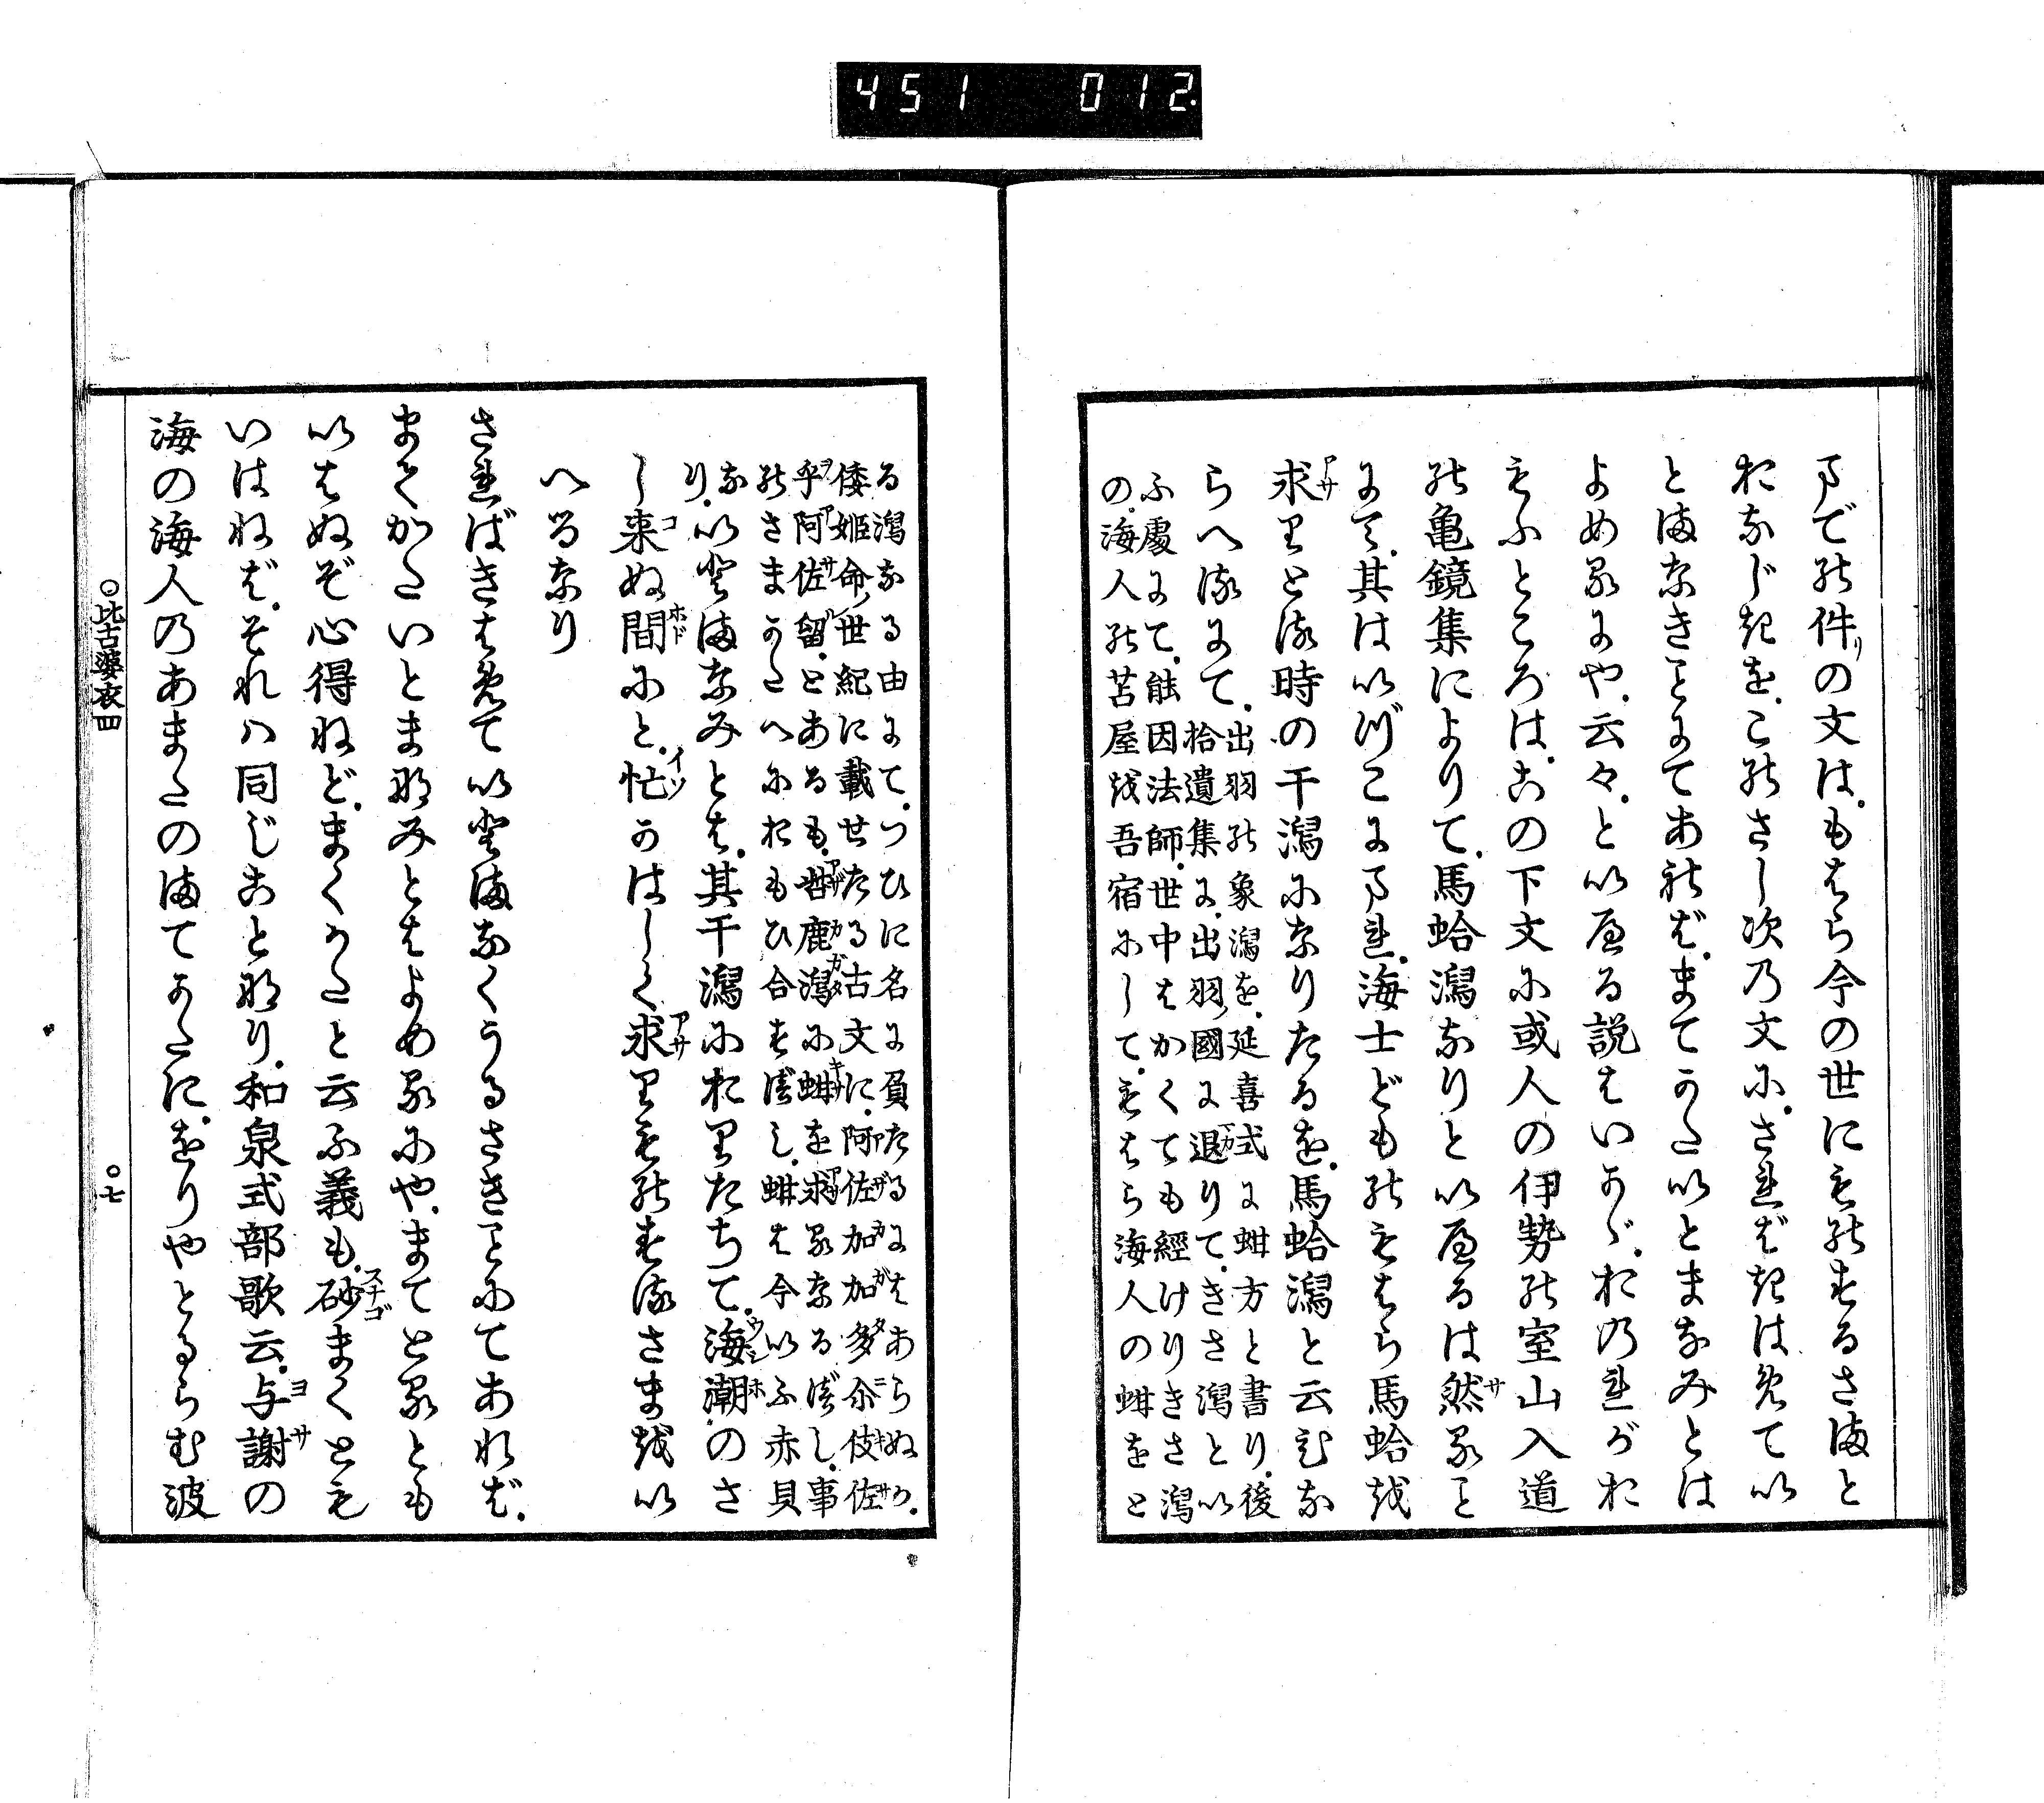 までの件リの文は、もはら今の世にものするさまと
おなじきを、このさし次の文に、さればきはめてい
とまなきことにてあれば、まてかたいとまなみとは
よめるにや、云々、といへる説はいかゞ、おのれがお
もふところは、この下文に或人の伊勢の室山入道
の亀鏡集によりて、馬蛤潟なりといへるは然ること
にて、其はいづこにまれ、海士どものもはら馬蛤を
求りとる時の干潟になりたるを、馬蛤潟と云むな
らへるにて、
出羽の象潟を、延喜式に蚶方と書り、後
拾遺集に、出羽國に退りて、きさ潟とい
ふ處にて、能因法師、世中はかくても經けりきさ潟
の、海人の苫屋を吾宿にして、もはら海人の蚶をと
る潟なる由にて、つひに名に負たるにはあらぬか、
倭姫命ノ世紀に載せたる古文に、阿佐加加多尓伎佐
乎阿佐留、とあるも、鹿潟に蚶を求るなるべし、事
のさまかたへにおもひ合すべし、蚶は今いふ赤貝
なり、いとまなみとは、其干潟におりたちて、海潮のさ
し来ぬ間にと、忙かはしく求りものするさまをい
へるなり
さればきはめていとまなくうるさきことにてあれば、
まてかたいとまなみとはよめるにや、まてとるとも
いはぬぞ心得ねど、まくかたと云ふ義も、砂まくとも
いはねば、それハ同じことなり、和泉式部歌云、与謝の
海の海人のあまたのまてかたに、をりやとるらむ波
○比古婆衣四
○七
451 012